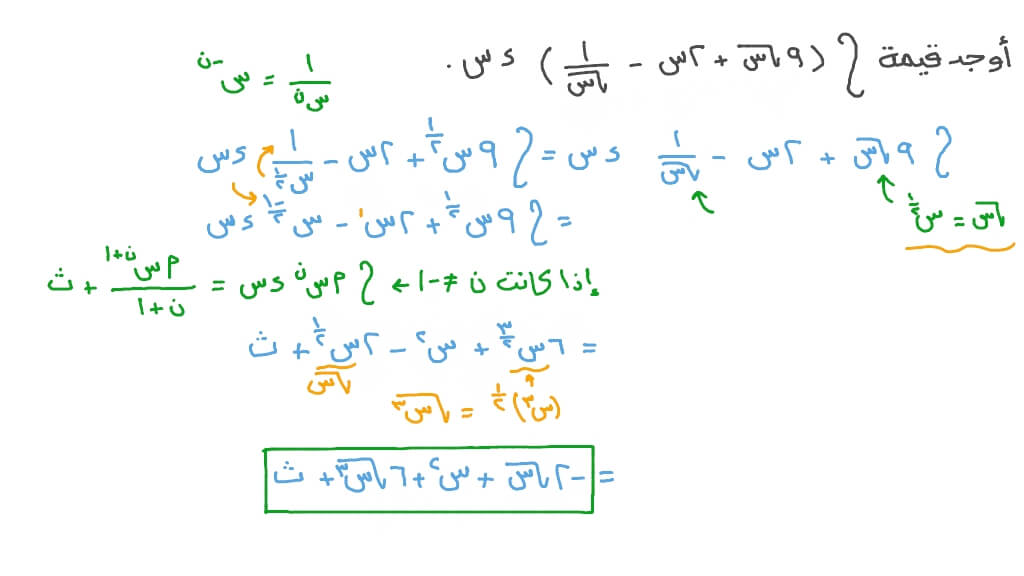 أوجد قيمة ∫(٩√س + ٢س − ١/√س) ءس.
س^−ن = ١/س^ن
∫ ٩√س + ٢س − ١/√س ءس = ∫ ٩س^١/٢ + ٢س − ١/س^١/٢ ءس
√س = س^١/٢
= ∫ ٩س^١/٢ + ٢س^١ − س^−١/٢ ءس
إذا كانت ن ≠ −١ ← ∫ م س^ن ءس = م س^ن+١/ن+١ + ث
= ٦س^٣/٢ + س^٢ − ٢س^١/٢ + ث
√س
(س^٣)^١/٢ = √س^٣
= −٢√س + س^٢ + ٦√س^٣ + ث